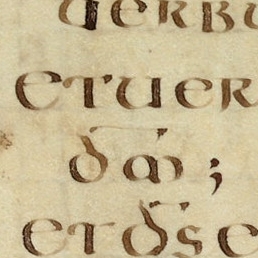 uerbu
et uer
dm̄ ;
et ds̄ e